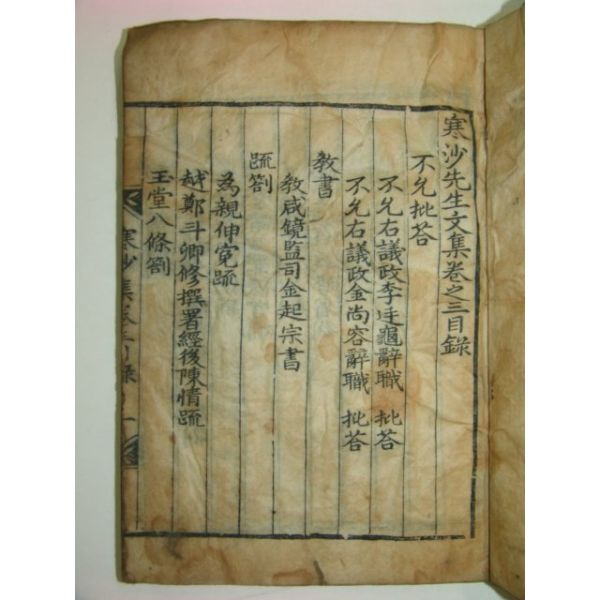 寒沙先生文集卷之三目錄
不允批荅
不允右議政李廷龜辭職 批荅
不允右議政金尚容辭職 批荅
敎書
敎咸鏡監司金起宗書
疏劄
爲親伸寃疏
越鄭斗卿修撰署經後陳情疏
玉堂八條劄
寒沙集卷三目錄 一